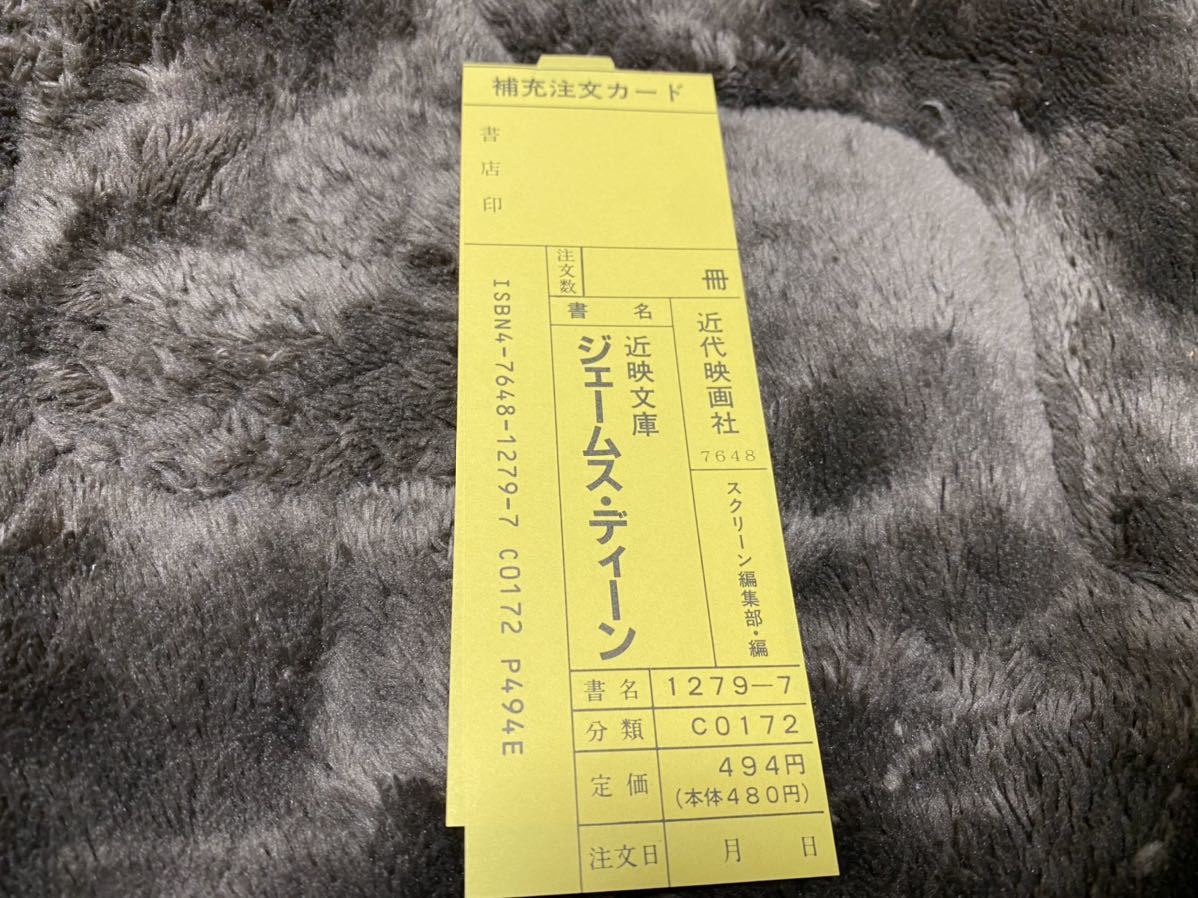 補充注文カード
書店印
注文数
冊
書名
近代映画社
7648
スクリーン編集部・編
近映文庫
ジェームス・ディーン
ISBN4-7648-1279-7 C0172 P494E
書名 1279-7
分類 C0172
定価 494円
(本体480円)
注文日 月 日